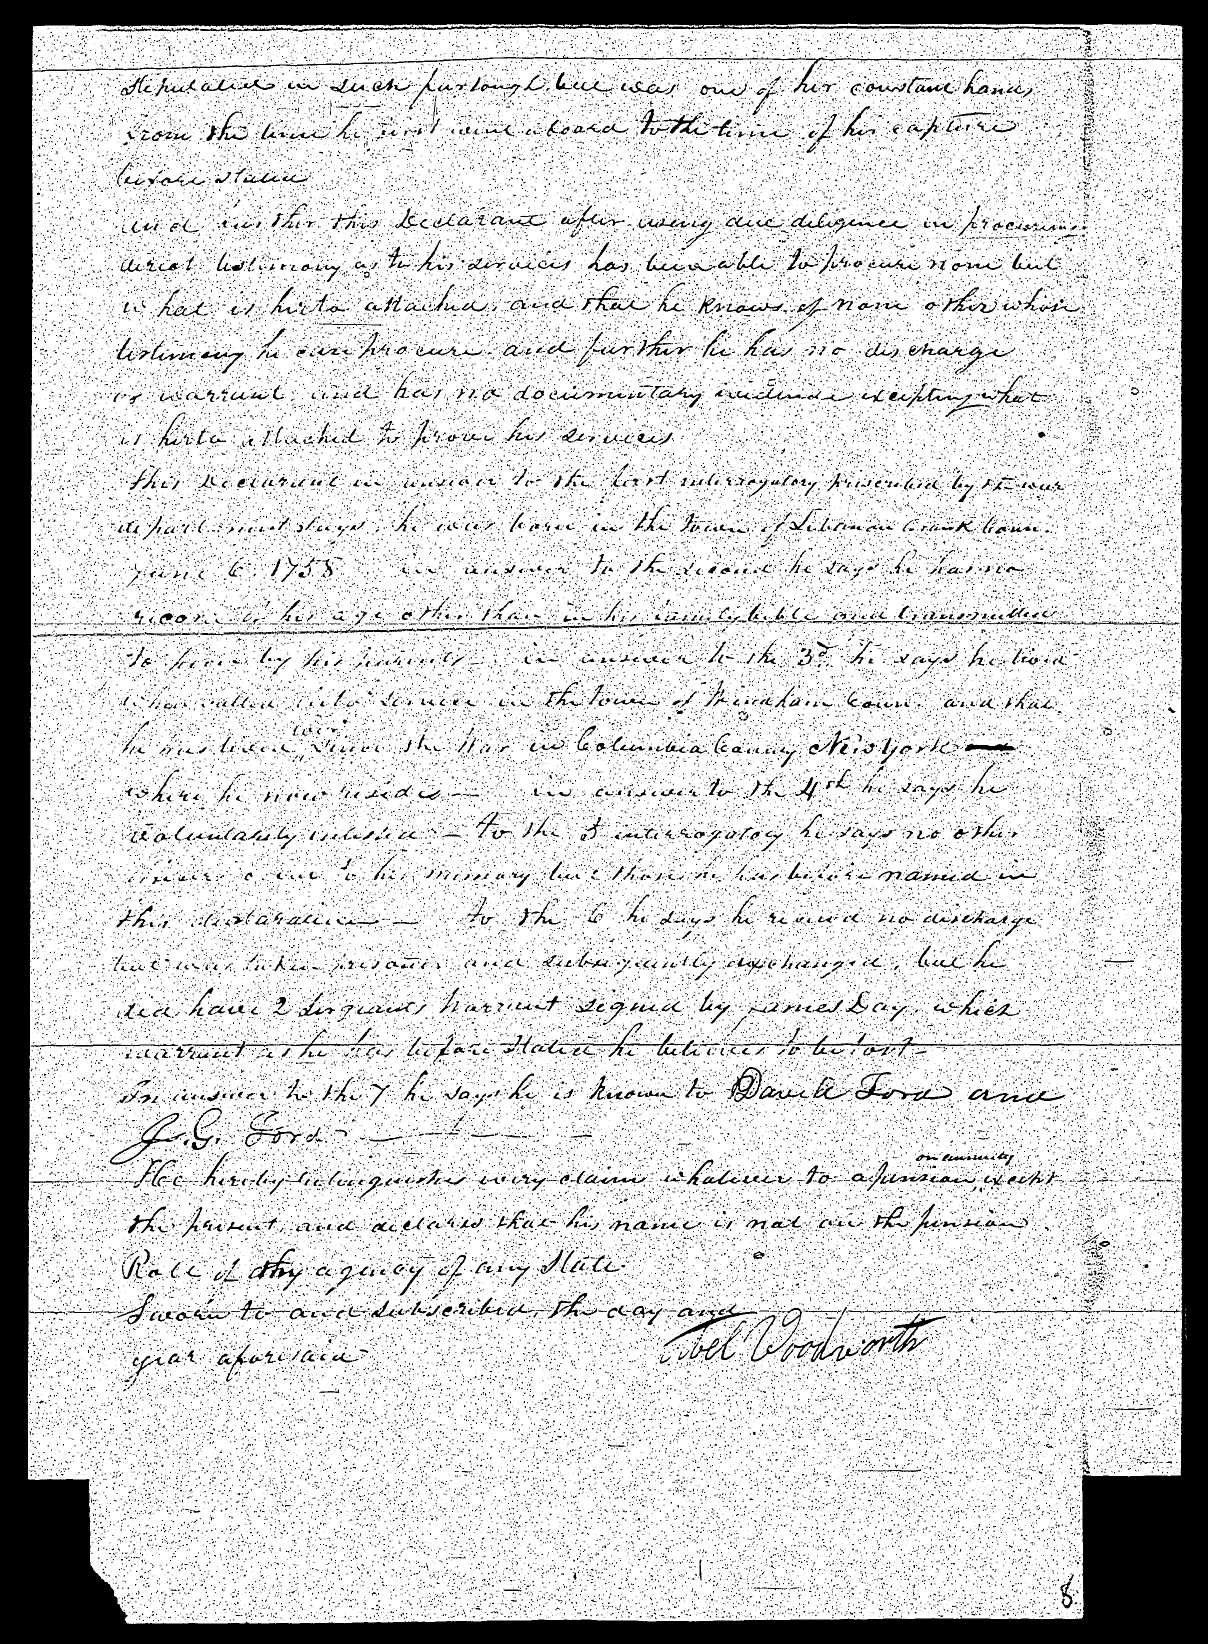 stipulated in such furlough but was one of her constant hands
from the time he first went aboard to the time of his capture
before stated
and further this Declarant after using due diligence in procuring
direct testimony as to his services has been able to procure none but
what is hirto attached, and that he knows of none other whose
testimony he can procure and further he has no discharge
or warrant and has no documentary evidence excepting what
is hirto attached to prove his services
this Declarant in answer to the first interrogatory prescribed by the war
department says, he was born in the town of Lebanon Crank Conn.
June 6 1758 in answer to the second he says he has no
record of his age other than in his family bible and transmitted
to him by his parents — in answer to the 3d he says he lived
when called into service in the town of Windham Conn. and that
he has lived ever since the War in Columbia County New York
where he now resides — in answer to the 4th he says he
voluntarily enlisted — to the 5 interrogatory he says no other
to his memory but those he has before named in
this declaration — to the 6 he says he received no discharge
but was taken prisoner and subsequently exchanged, but he
did have 2 Sergeants Warrant signed by James Day, which
warrant as he has before stated he believes to be lost —
In answer to the 7 he says he is known to David Ford and
J. G. Ford —
He hereby relinquishes every claim whatever to a pension or annuity except
the present, and declares that his name is not on the pension
Roll of any agency of any State
Sworn to and subscribed, the day and
year aforesaid
Abel Woodworth
8